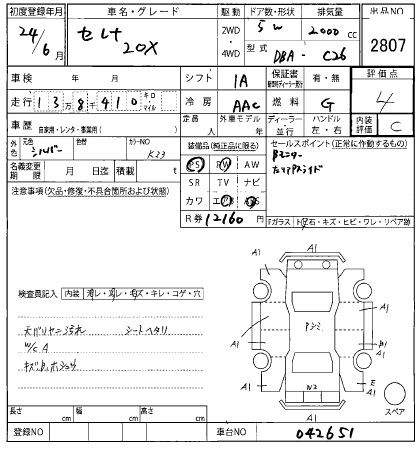 初度登録年月 車名・グレード 駆動 ドア数・形状 排気量 出品NO
24/6月 セレナ 20X 2WD・4WD 5W 2000cc 2807
型式 DBA - C26
車検 年 月 シフト IA 保証書 有・無 評価点
走行 13万8千410 キロ・マイル 冷房 AAC 燃料 G 4
車歴 自家用・レンタ・事業用( ) 定員 人 外車モデル 年 ディーラー・並行 ハンドル 左・右 内装評価 C
外色 元色 シルバー 色替 カラーNO K23
装備品(純正品に限る)
セールスポイント(正常に作動するもの)
名義変更期限 月 日迄 積載 t
PS PW AW
SR TV ナビ
カワ エアB
注意事項(欠品・修復・不具合箇所および状態)
R券 12160円
Fガラス トビ石・キズ・ヒビ・ワレ・リペア跡
検査員記入 内装
キレ・コゲ・穴
シートヘタリ
W/C A
A1
A1 A1
Pシミ
A1
A1
E
A1
W2
A1
スペア
長さ cm 幅 cm 高さ cm
登録NO 車台NO 042651